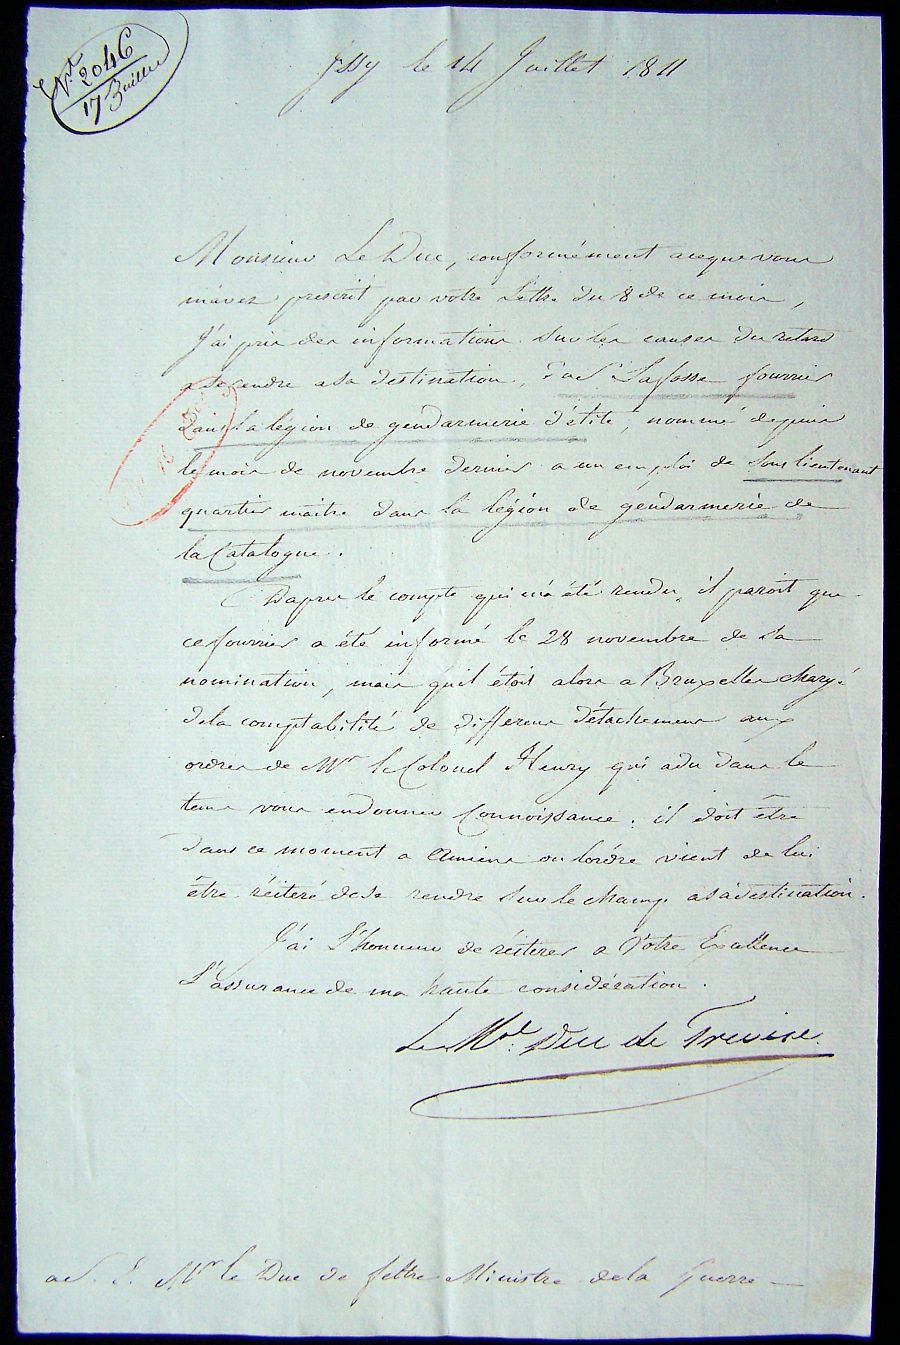 N.º 2046
17 Juillet
Issy le 14 Juillet 1811
Monsieur Le Duc, conformément aceque vous
m'avez prescrit par votre Lettre du 8 de ce mois,
J'ai pris des informations sur les causes du retard
a se rendre a sa destination, Lafosse fourrier
dans la légion de gendarmerie d'élite, nommé depuis
le mois de novembre dernier a un emploi de Sous lieutenant
quartier maitre dans la légion de gendarmerie de
la Catalogne.
D'apres le compte qui m'a été rendu, il paroit que
ce fourrier a été informé le 28 novembre de sa
nomination, mais qu'il étoit alors a Bruxelles chargé
dela comptabilité de differens détachemens aux
ordres de Mr. le Colonel Henry qui a du dans le
tems vous endonner Connoissance; il doit être
dans ce moment a Amiens ou l'ordre vient de lui
être réiteré dese rendre sur le champ asadestination.
J'ai L'honneur de réiterer a Votre Excellence
L'assurance de ma haute considération.
Le Mal. Duc de Trevise.
a S. E. Mr. le Duc de feltre Ministre dela Guerre